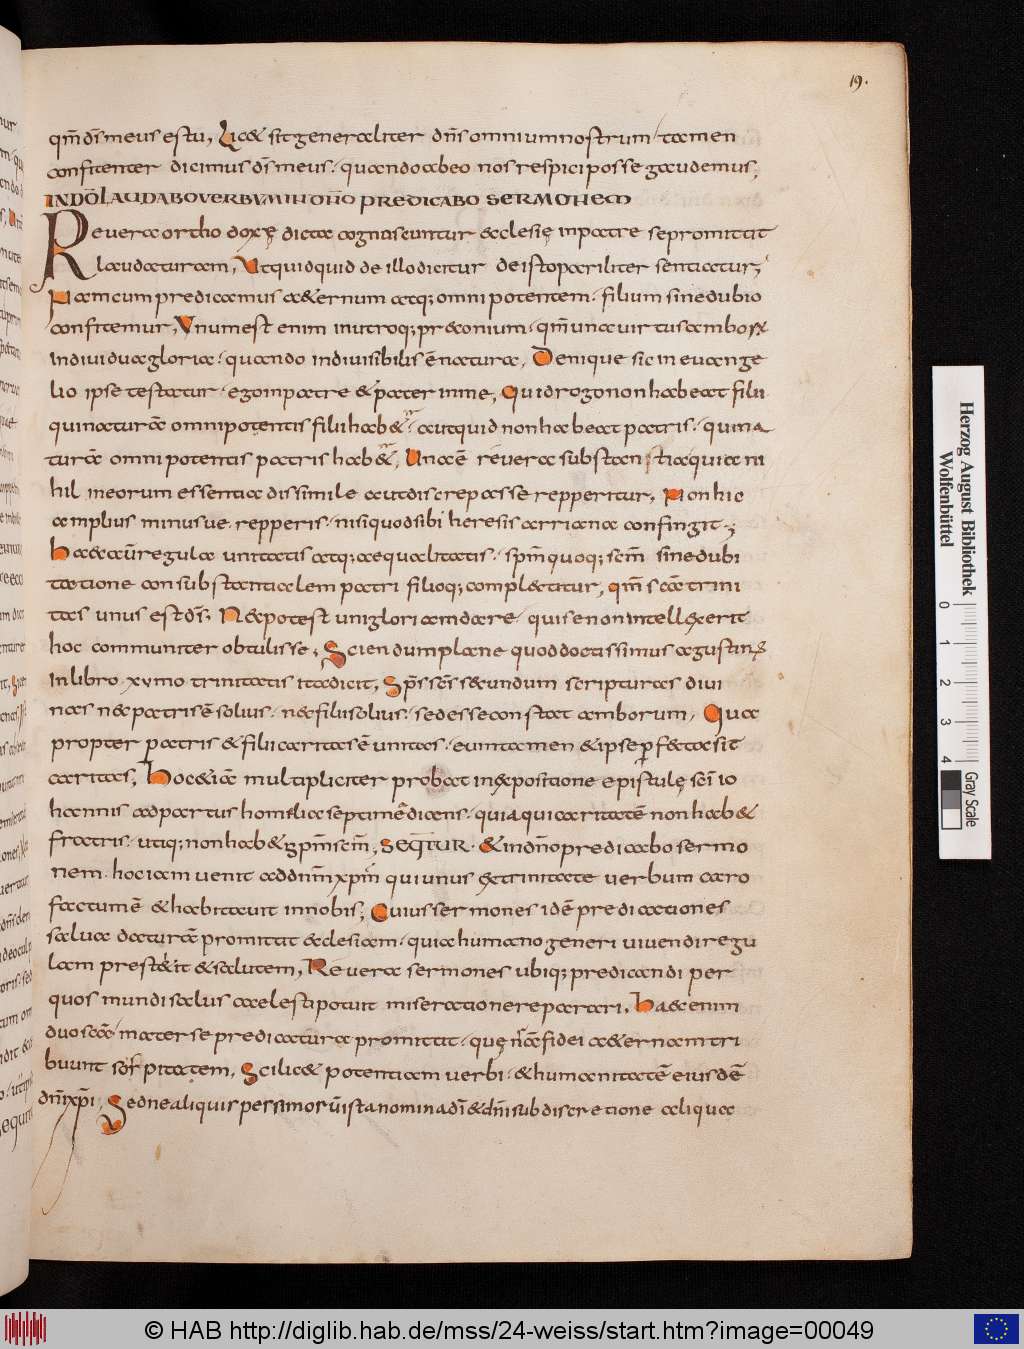 19.
qm̄ ds̄ meus es tu, Lic& sit generaliter dn̄s omnium nostrum tamen
confitenter dicimus ds̄ meus. quando abeo nos respici posse gaudemus,
IN DŌ LAUDABO VERBUM IN DN̄O PREDICABO SERMONEM
Revera orthodoxę dictae agnascuntur aeclesię in patre se promittit
laudaturam, Ut quidquid de illo dicitur de isto pariliter sentiatur,
Nam cum predicamus a&ernum atq; omnipotentem. filium sine dubio
confitemur, Unum est enim in utroq; praeconium. qm̄ una uirtus amborum
indiuidua gloria. quando indiuisibilis ē natura, Denique sic in euange
lio ipse testatur. ego in patre & pater in me, Quid rogo non habeat filii
qui naturā omnipotentis filii hab&. aut quid non habeat patris. qui na
turā omnipotentis patris hab&, Una ē reuera substantia quia ni
hil in eorum essentia dissimile aut discrepasse repperitur, Non hic
amplius minusue repperis. nisi quod sibi heresis arriana confingit;
Haec aū regula unitatis atq; aequalitatis. spm̄ quoq; scm̄ sine dubi
tatione consubstantialem patri filioq; compl&titur, qm̄ scā trini
tas unus est ds̄; Nec potest uni gloriam dare. quise non intellexerit
hoc communiter obtulisse; Sciendum plane quod doctissimus agustinus
in libro xvmo trinitatis ita dicit, Sps̄ scs̄ secundum scripturas diui
nas nec patris ē solius. nec filii solius. sed esse constat amborum, Qua
propter patris & filii caritas ē unitas. cui tamen & ipse perfecta sit
caritas, Hoc &iā multipliciter probat in expositione epistulę sc̄i io
hannis ad partus homelia septima dicens. quia qui caritatē non hab&
fratris. utiq; non hab& spm̄ scm̄, SEQUITUR. & in dn̄o predicabo sermo
nem. hoc iam uenit ad dnm̄ xpm̄ qui unus ex trinitate uerbum caro
factum ē & habitauit in nobis; Cuius sermones idē predicationes
salua daturā promittit aeclesiam. quia humano generi uiuendi regu
lam prestitit & salutem, Reuera sermones ubiq; predicandi per
quos mundi salus caelesti potuit miseratione reparari. Haec enim
duo scā mater se predicatura promittit. quę nrāe fidei a&ernam tri
buunt sospitatem, Scilic& potentiam uerbi. & humanitatē eiusdē
dn̄i xp̄i; Sed ne aliquis persimoru ista nomina dī & dn̄i sub discretione aliqua
Herzog August Bibliothek
Wolfenbüttel
0 1 2 3 4
Gray Scale
© HAB http://diglib.hab.de/mss/24-weiss/start.htm?image=00049